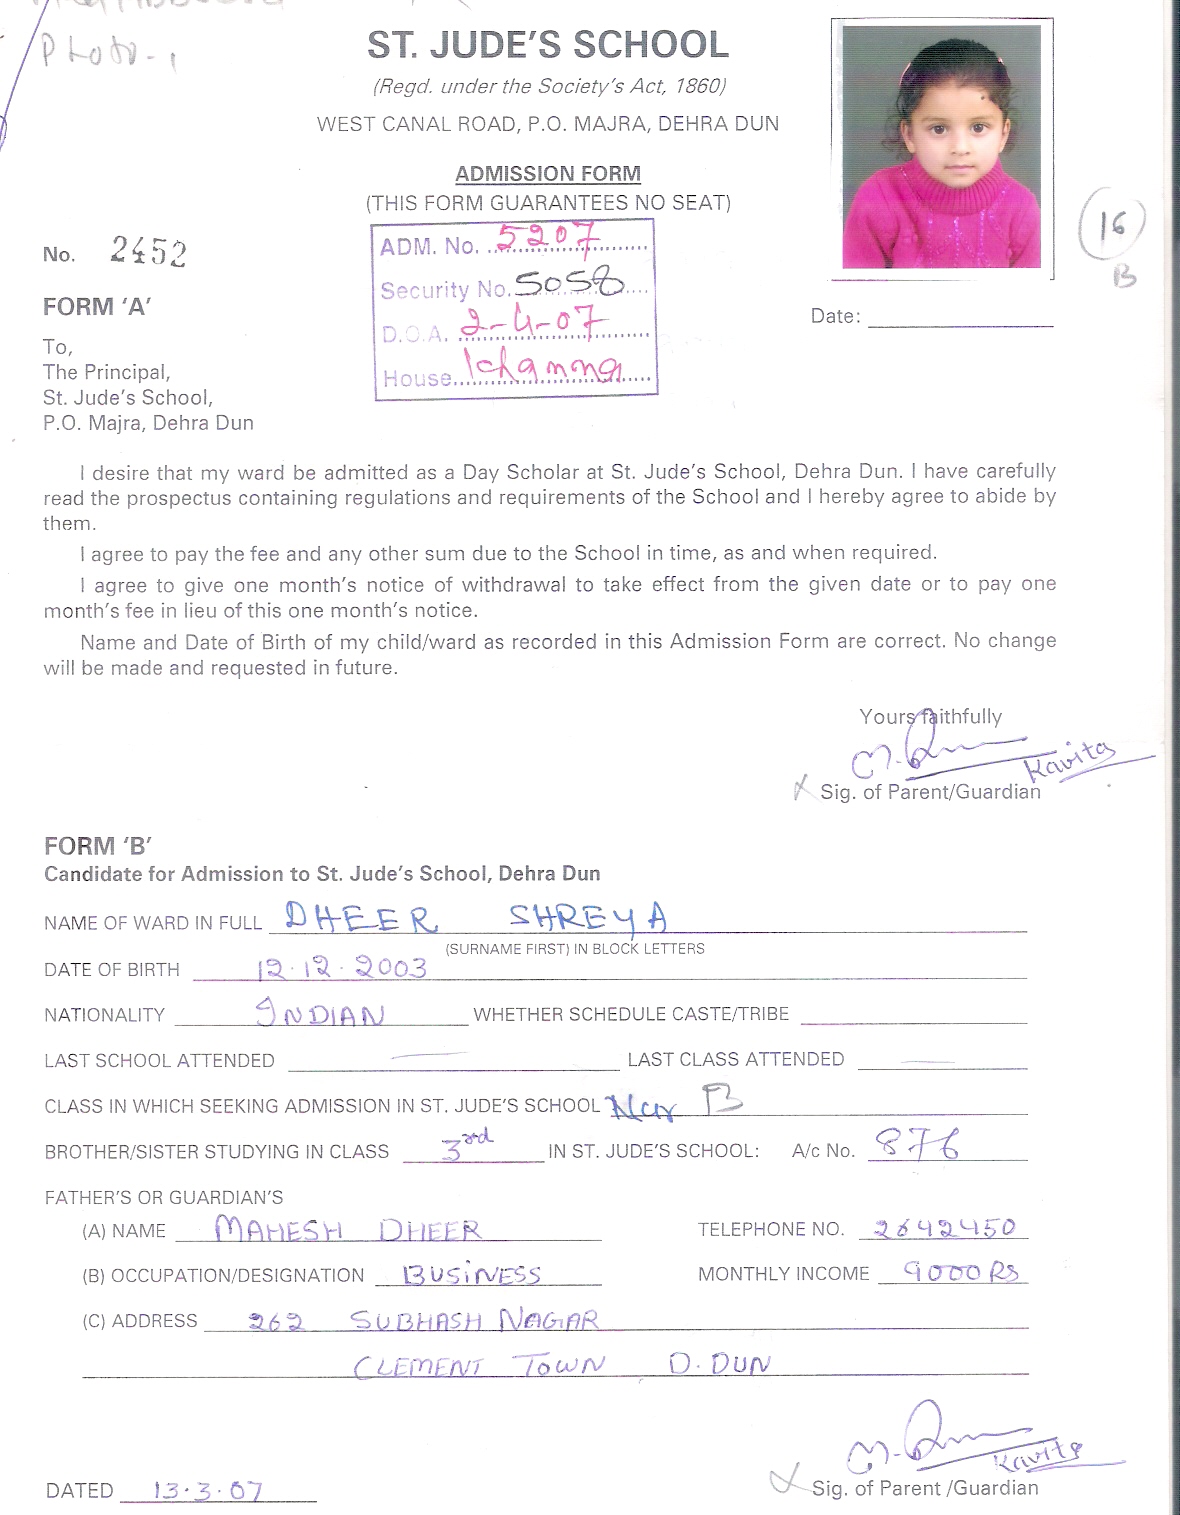 Photo-1
ST. JUDE'S SCHOOL
(Regd. under the Society's Act, 1860)
WEST CANAL ROAD, P.O. MAJRA, DEHRA DUN
ADMISSION FORM
(THIS FORM GUARANTEES NO SEAT)
No. 2452
ADM. No. 5207
Security No. 5058
D.O.A. 2-4-07
House
16
B
Date:
FORM 'A'
To,
The Principal,
St. Jude's School,
P.O. Majra, Dehra Dun
I desire that my ward be admitted as a Day Scholar at St. Jude's School, Dehra Dun. I have carefully
read the prospectus containing regulations and requirements of the School and I hereby agree to abide by
them.
I agree to pay the fee and any other sum due to the School in time, as and when required.
I agree to give one month's notice of withdrawal to take effect from the given date or to pay one
month's fee in lieu of this one month's notice.
Name and Date of Birth of my child/ward as recorded in this Admission Form are correct. No change
will be made and requested in future.
Yours faithfully
Kavita
Sig. of Parent/Guardian
FORM 'B'
Candidate for Admission to St. Jude's School, Dehra Dun
NAME OF WARD IN FULL DHEER SHREYA
(SURNAME FIRST) IN BLOCK LETTERS
DATE OF BIRTH 12.12.2003
NATIONALITY INDIAN WHETHER SCHEDULE CASTE/TRIBE
LAST SCHOOL ATTENDED LAST CLASS ATTENDED
CLASS IN WHICH SEEKING ADMISSION IN ST. JUDE'S SCHOOL Nur B
BROTHER/SISTER STUDYING IN CLASS 3rd IN ST. JUDE'S SCHOOL: A/c No. 876
FATHER'S OR GUARDIAN'S
(A) NAME MAHESH DHEER TELEPHONE NO. 2642450
(B) OCCUPATION/DESIGNATION BUSiNESS MONTHLY INCOME 9000 RS
(C) ADDRESS 262 SUBHASH NAGAR
CLEMENT TOWN D.DUN
Kavita
DATED 13.3.07 Sig. of Parent /Guardian